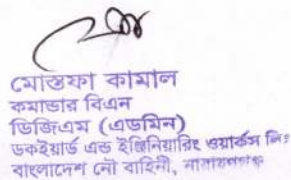 মোস্তফা কামাল
কমান্ডার বিএন
ডিজিএম (এডমিন)
ডকইয়ার্ড এন্ড ইঞ্জিনিয়ারিং ওয়ার্কস লিঃ
বাংলাদেশ নৌ বাহিনী, নারায়নগঞ্জ